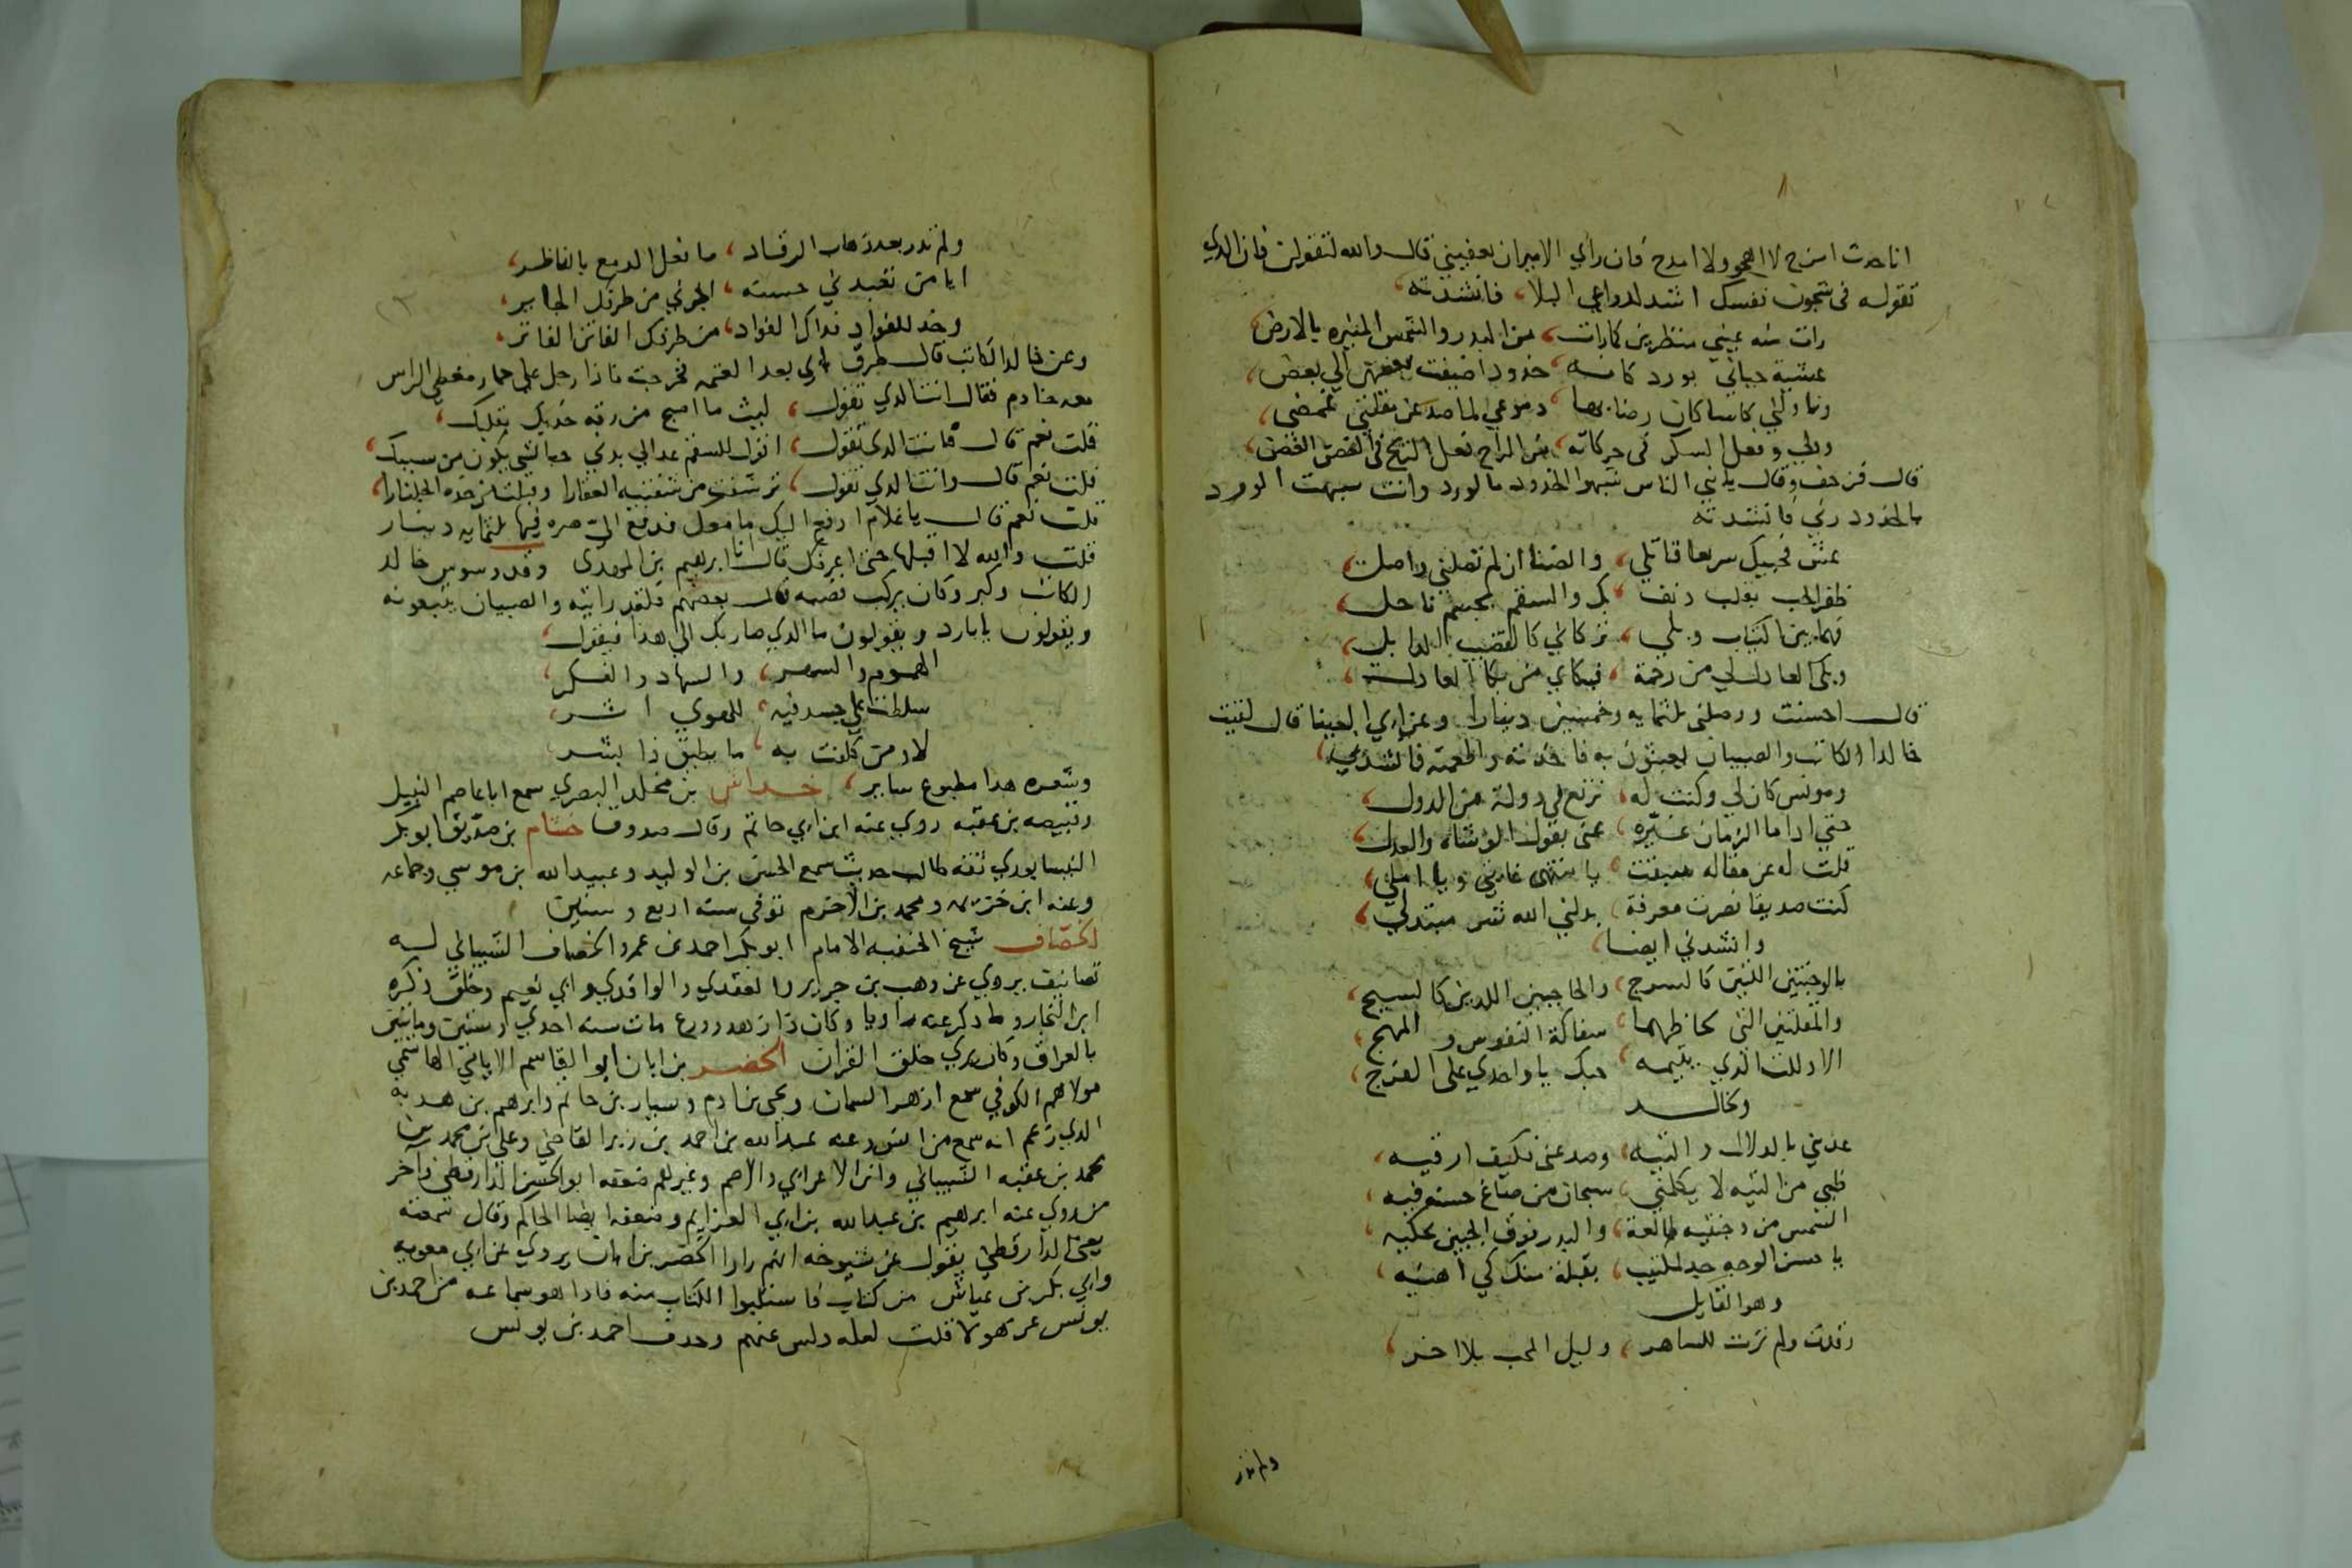 انا حدث امزح لا اهجو ولا امدح فان راي الامير ان يعفيني قال والله لتقولن فان الذي
تقوله في شجون نفسك اشد لدواعي البلا، فانشدته،
رات منه عيني منظرين كما رات، من البدر والشمس المنيره بالارض
عشية حياني بورد كانه، خدود اضيفت بعضهن الي بعض،
وناولني كاسا كان رضابها، دموعي لما صد عن مقلتي غمضي،
وولي وفعل السكر في حركاته، من الراح فعل الريح في الغصن الغض،
قال فزحف وقال يابني الناس شبهوا الخدود بالورد وانت شبهت الورد
بالخدود زدني فانشدته
عش فحبيك سريعا قاتلي، والضنا ان لم تصلني واصلي،
ظفر الحب بقلب دنف، بك والسقم بجسم ناحل،
فهما بين اكتئاب وبلي، تركاني كالقضيب الذابل،
وبكى العاذل لي من رحمة، فبكاي من بكا العاذل،
قال احسنت ووصلني بثلثمايه وخمسين دينارا وعن ابي العينا قال لقيت
خالدا الكاتب والصبيان يعبثون به فاخذته واطعمته فانشدني،
ومونس كان لي وكنت له، نرتع في دولة من الدول،
حتي اذا ما الزمان غيره، عني بقول الوشاة والعذل،
قلت له عن مقاله سبقت، يا منتهى غايتي ويا املي،
كنت صديقا فصرت معرفة، بدلني الله شر مبتدل،
وانشدني ايضا،
بالوجنتين اللتين كالسرج، والحاجبين اللذين كالسبج،
والمقلتين التي لحاظهما، سفاكة النفوس و المهج،
الا ذللت الذي يتيمه، حبك يا واحدي على الفرج،
ولخالد
عذبني بالدلال والتيه، وصد عني فكيف ارقيه،
ظبي من التيه لا يكلمني، سبحان من صاغ حسنه فيه،
الشمس من وجنتيه طالعة، والبدر فوق الجبين يحكيه،
يا حسن الوجه جد لمكتئب، بقبلة منك كي اهنيه،
وهو القايل
رقدت ولم ترث للساهر، وليل المحب بلا اخر،
ولم تدر
ولم تدر بعد ذهاب الرقاد، ما فعل الدمع بالناظر،
ايا من تعبدني حسنه، اجرني من طرفك الجاير،
وخذ للفواد فداك الفواد، من طرفك الفاتن الفاتر،
وعن خالد الكاتب قال طرق بابي بعد العتمه فخرجت فاذا رجل على حمار مغطي الراس
معه خادم فقال انت الذي تقول، ليت ما اصبح من رقه خديك بقلبك،
قلت نعم قال فانت الذي تقول، اقول للسقم عد الي بدني حبا لشي يكون من سببك،
قلت نعم قال وانت الذي تقول، ترشفت من شفتيه العقارا وقبلت من خده الجلنارا،
قلت نعم قال يا غلام ادفع اليك ما معك فدفع الي صره فيها ثلثمايه دينار
قلت والله لا اقبلها حتى اعرفك قال انا ابرهيم بن المهدى وقد وسوس خالد
الكاتب وكبر وكان يركب قصبه قال بعضهم فلقد رايته والصبيان يتبعونه
ويقولون يا بارد ويقولون ما الذي صار بك الي هذا فيقول،
الهموم والسهر، والسهاد والفكر،
سلطت علي جسد فيه، للهوي اثر،
لا ومن كلفت به، ما يطيق ذا بشر،
وشعره هذا مطبوع ساير، خداش بن مخلد البصري سمع ابا عاصم النبيل
وقبيصه بن عقبه روي عنه ابن ابي حاتم وقال صدوق خشنام بن صديق ابو بكر
النيسابوري ثقه صاحب حديث سمع الحسن بن الوليد وعبيد الله بن موسي وجماعه
وعنه ابن خزيمه ومحمد بن الاخرم توفي سنه اربع وستين
الخصاف شيخ الحنفيه الامام ابو بكر احمد بن عمرو الخصاف الشيباني له
تصانيف يروي عن وهب بن جرير والعقدي والواقدي وابي نعيم وخلق ذكره
ابن النجار وما ذكر عنه راويا وكان ذا زهد وورع مات سنه احدي وستين ومايتين
بالعراق وكان يري خلق القران الخضر بن ابان ابو القاسم الاياني الهاشمي
مولاهم الكوفي سمع ازهر السمان ويحيى بن ادم وسيار بن حاتم وابرهيم بن هدبه
الذي زعم انه سمع من انس وعنه عبد الله بن احمد بن زبر القاضي وعلي بن محمد بن
محمد بن عقبه الشيباني وابن الاعرابي والاصم وغيرهم ضعفه ابو الحسن الدارقطني واخر
من روي عنه ابرهيم بن عبد الله بن ابي العزايم وضعفه ايضا الحاكم وقال سمعته
يعني الدارقطني يقول عن شيوخه انهم راوا الخضر بن ابان يروي عن ابي معويه
وابي بكر بن عياش من كتاب فاستلبوا الكتاب منه فاذا هو سماعه من احمد بن
يونس عن هولا قلت لعله دلس عنهم وحذف احمد بن يونس